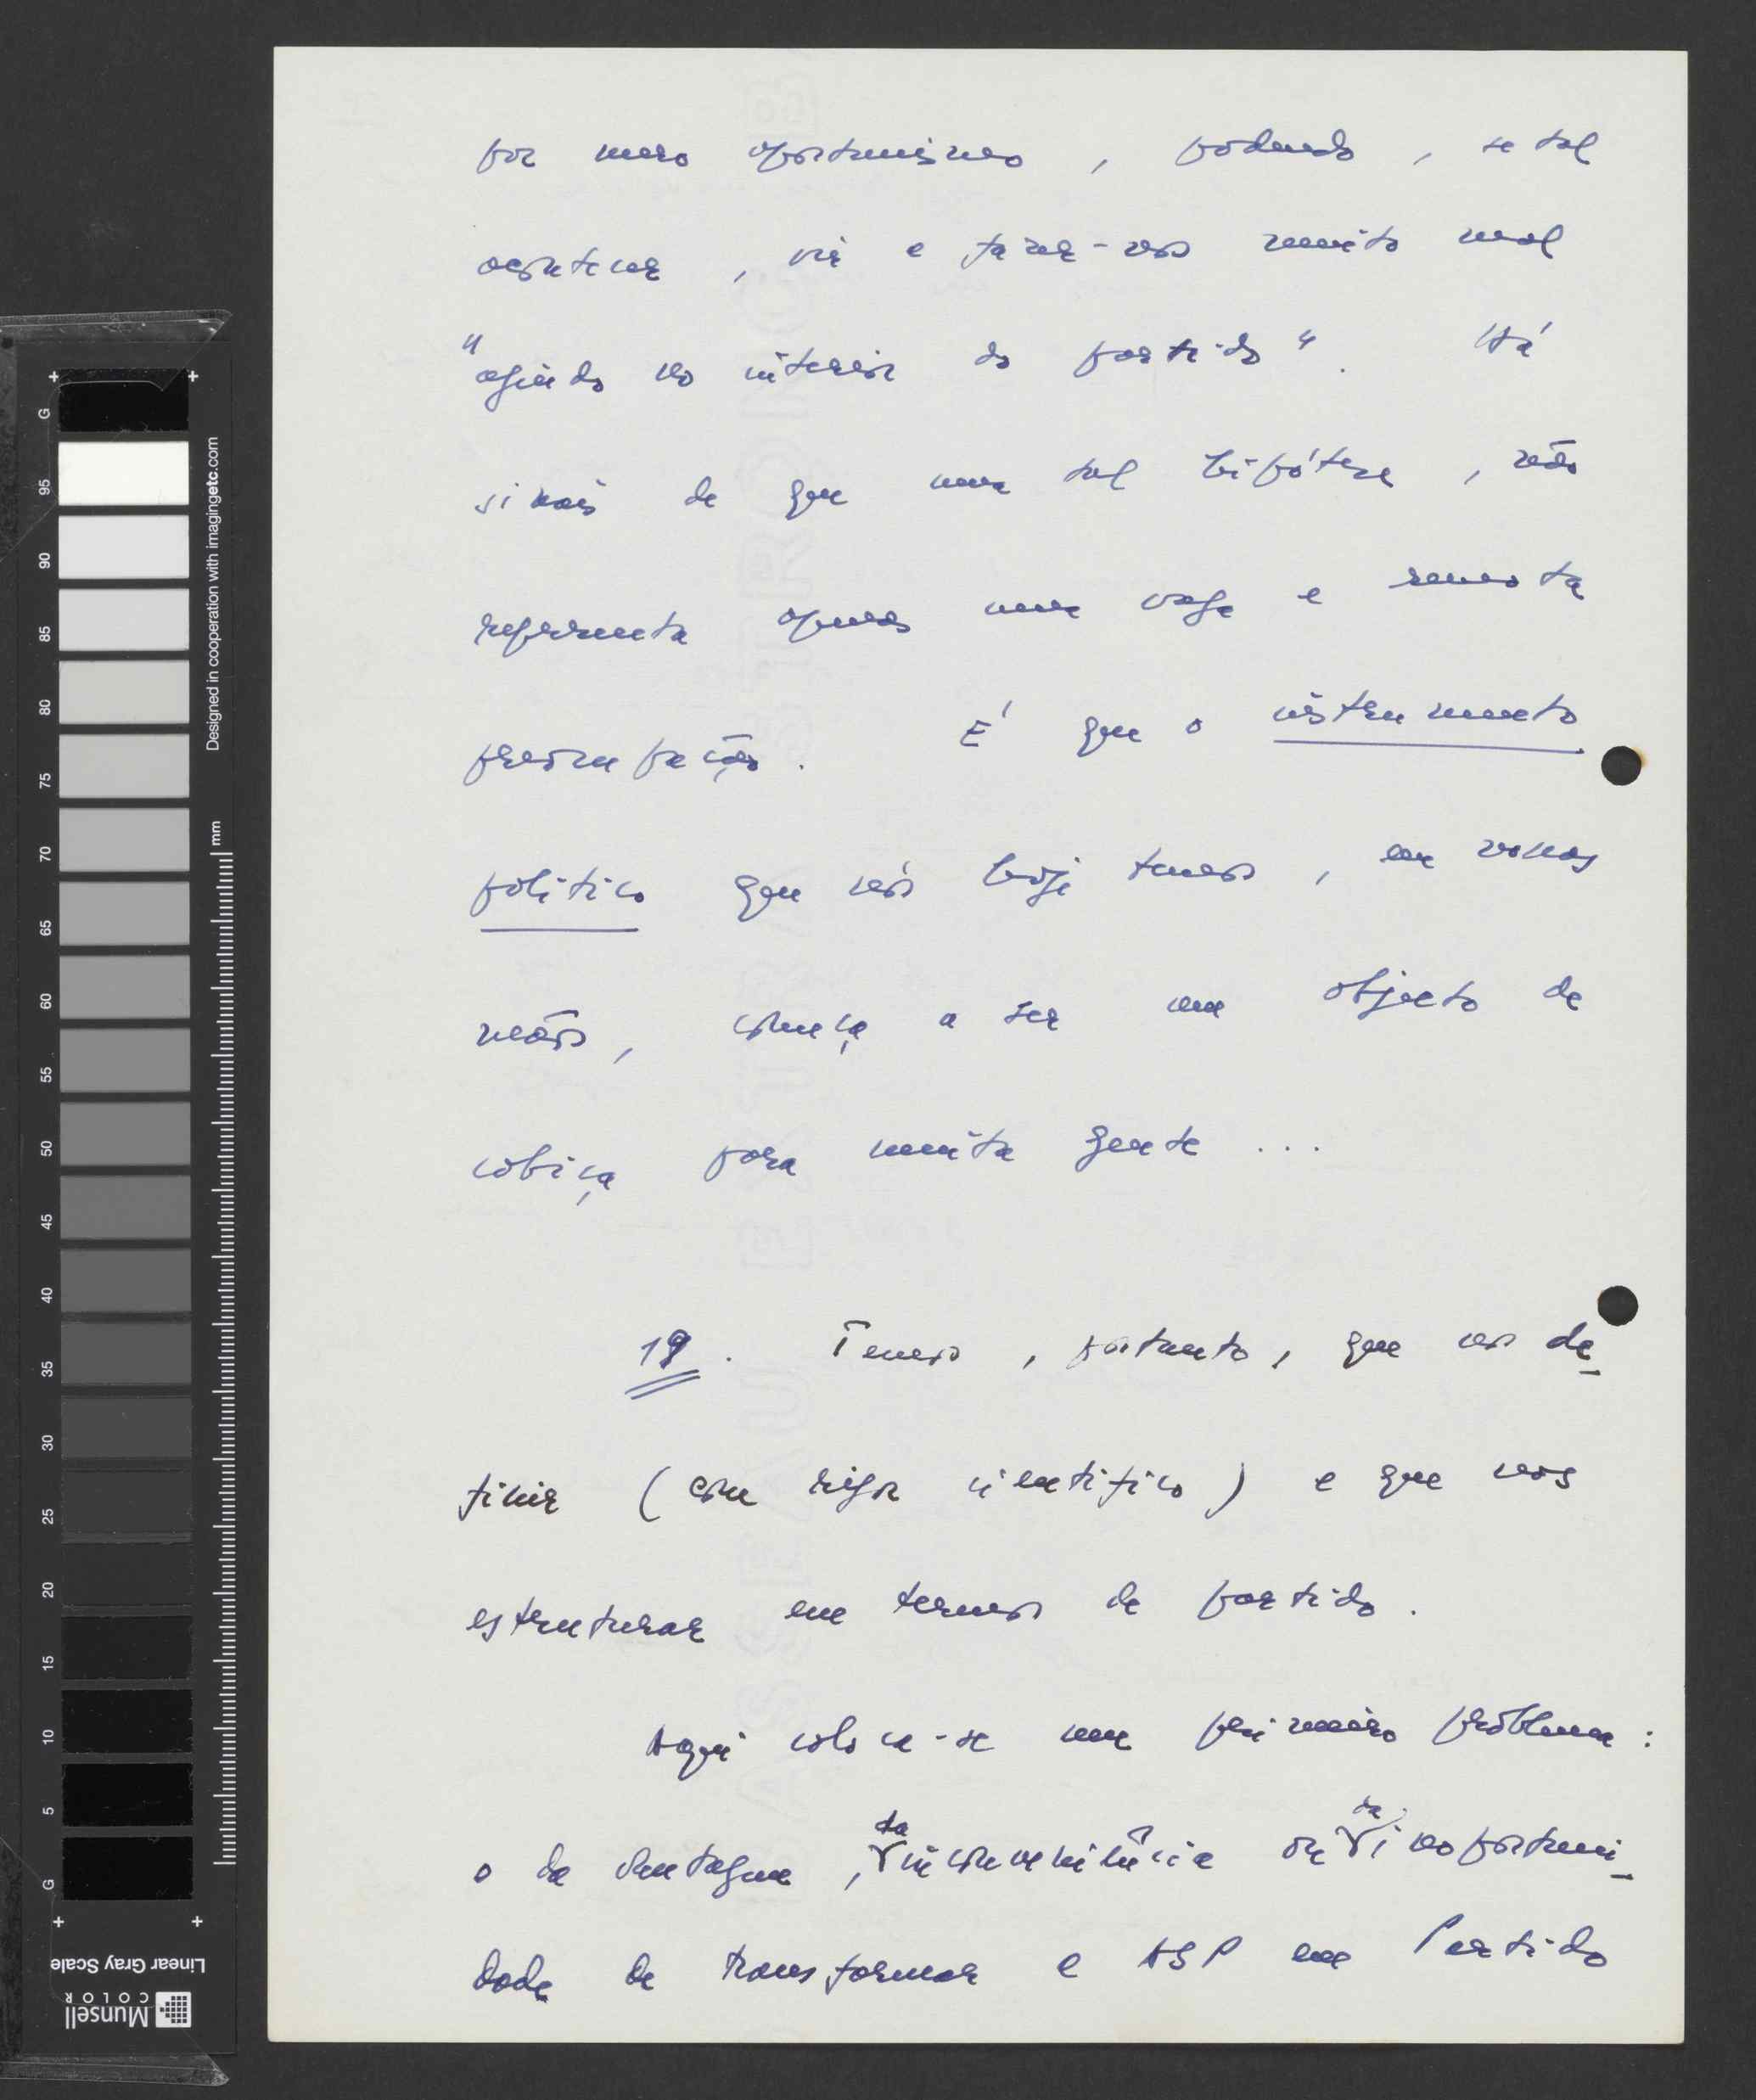 por mero oportunismo, podendo, se tal
acontecer, vir a fazer-nos muito mal
"agindo no interior do partido". Há
sinais de que uma tal hipótese, não
representa apenas uma vaga e remota
preocupação. É que o instrumento
político que nós hoje temos, em nossas
mãos, começa a ser um objecto de
cobiça para muita gente ...
19. Temos, portanto, que nos de-
finir (com rigor científico) e que nos
estruturar em termos de partido.
Aqui coloca-se um primeiro problema:
o da vantagem, da inconveniência ou da inoportuni-
dade de transformar a ASP em Partido
G 95 90 85 80 75 70 65 60 55 50 45 40 35 30 25 20 15 10 5 G
Designed in cooperation with imagingetc.com
mm
Linear Gray Scale
Munsell
COLOR